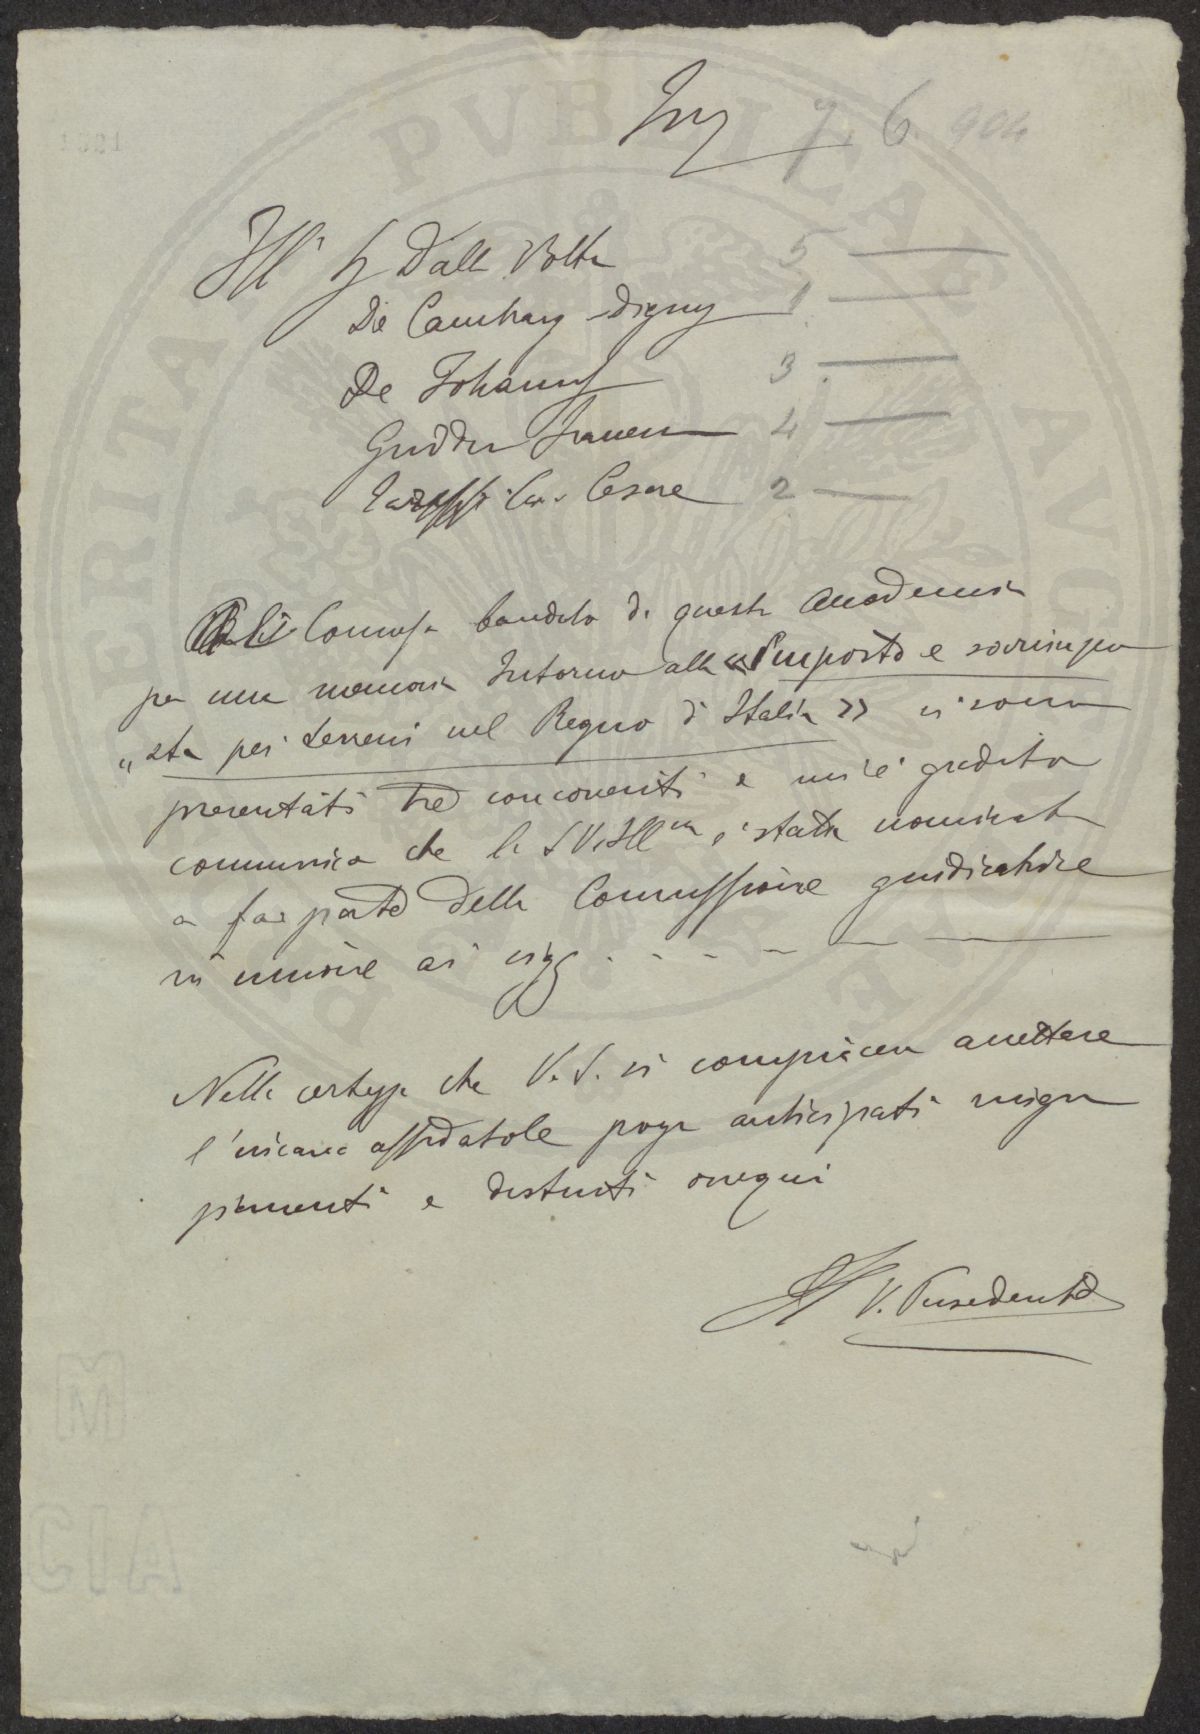 7. 6. 904
Ill Sg Dalla Volta 5
De Cambray-Digny 1
De Johannis 3
Guidder 4
Cesare 2
Concorso bandito da questa Accademia
per una memoria Intorno alla « Imposta e sovrimpo
"sta pei terreni nel Regno d'Italia » si sono
presentati tre concorrenti e mi è gradito
comunica che la S V. Ill ma è stata nominata
a far parte della Commissione giudicatrice
in unione ai sigg . - - - - -
Nella certezza che V. S. si compiacera accettare
l'incarico affidatole porgo anticipati ringra
ziamenti e distinti ossequi
Il V. Presidente